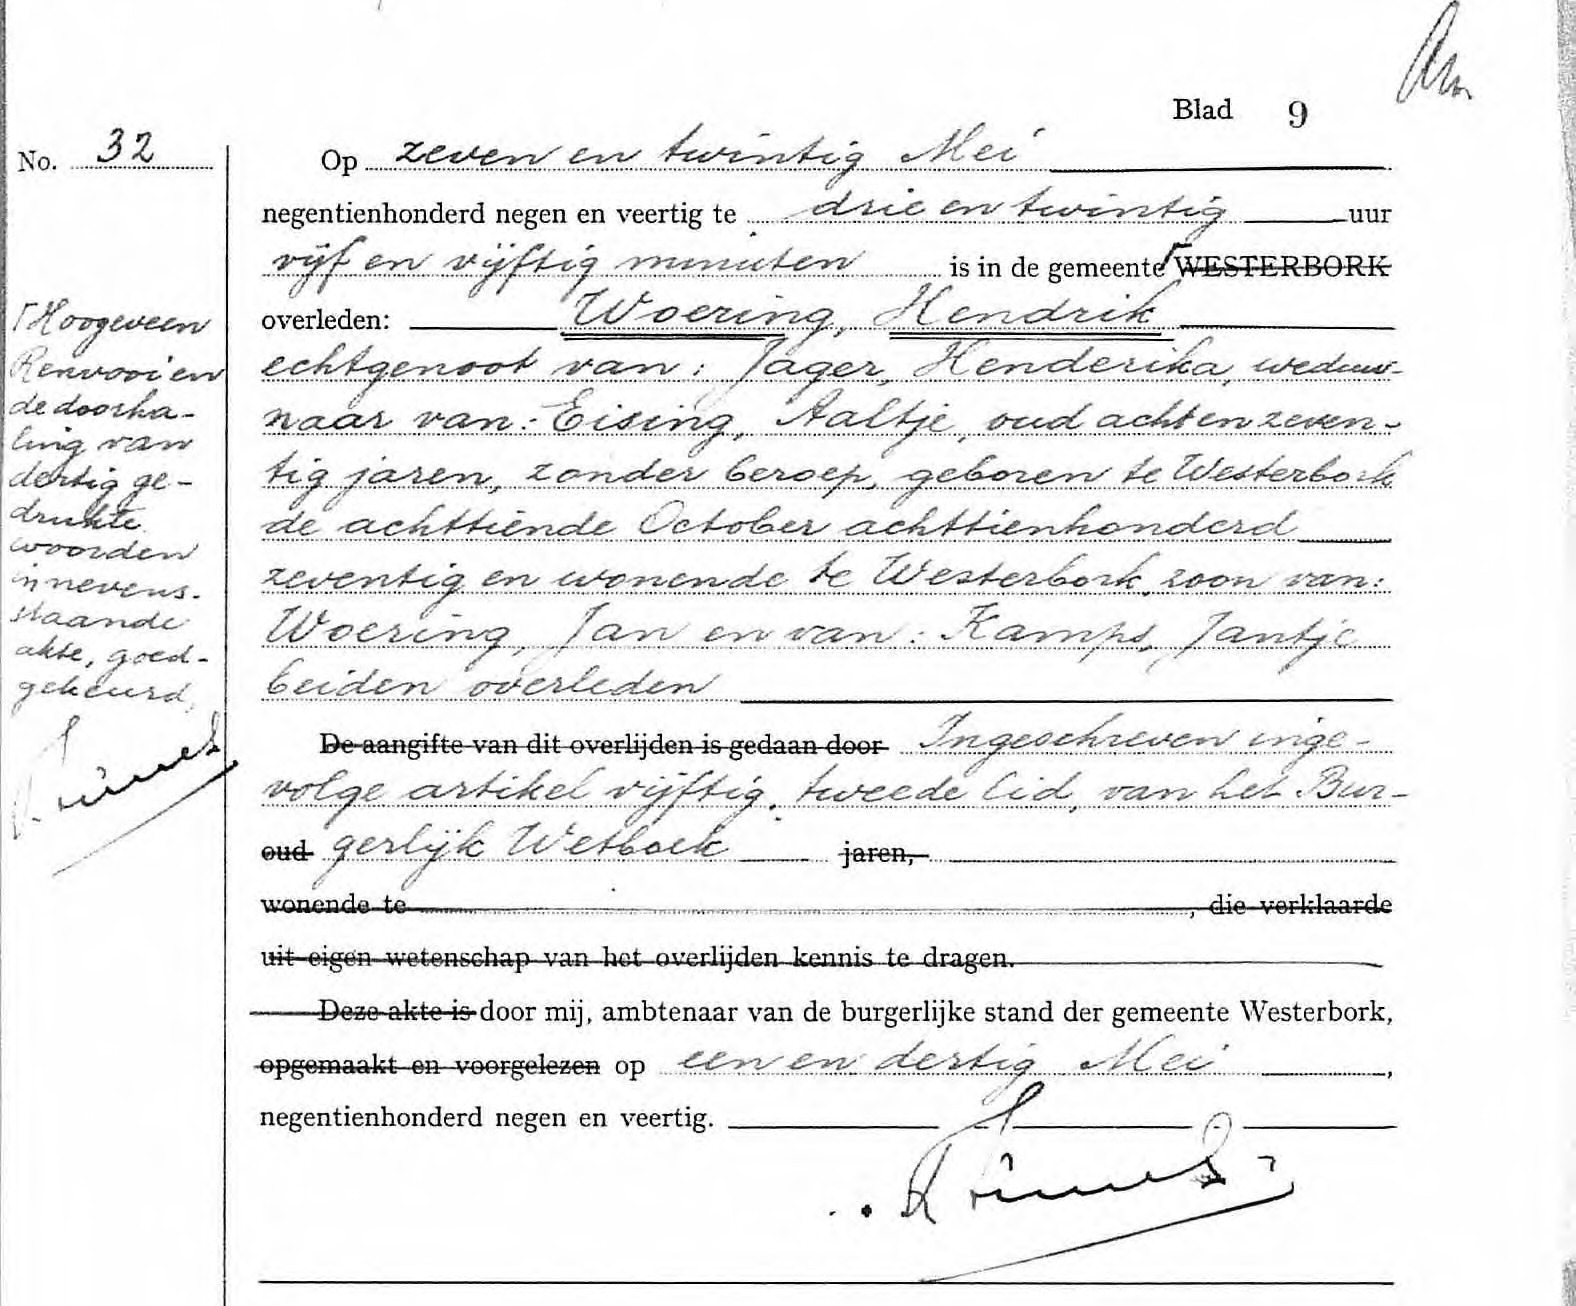 Blad 9
No. 32
Op zeven en twintig Mei
negentienhonderd negen en veertig te drie en twintig uur
vijf en vijftig minuten is in de gemeente ┌ WESTERBORK
overleden: Woering, Hendrik
echtgenoot van: Jager, Henderika, weduw-
naar van: Eising, Aaltje, oud acht en zeven-
tig jaren, zonder beroep, geboren te Westerbork
de achttiende October achttienhonderd
zeventig en wonende te Westerbork, zoon van:
Woering, Jan en van: Kamps, Jantje
beiden overleden
De aangifte van dit overlijden is gedaan door Ingeschreven inge-
volge artikel vijftig, tweede lid, van het Bur-
oud gerlijk Wetboek jaren,
wonende te , die verklaarde
uit eigen wetenschap van het overlijden kennis te dragen.
Deze akte is door mij, ambtenaar van de burgerlijke stand der gemeente Westerbork,
opgemaakt en voorgelezen op een en dertig Mei,
negentienhonderd negen en veertig.
┌ Hoogeveen
Renvooi en
de doorha-
ling van
dertig ge-
drukte
woorden
in nevens-
staande
akte, goed-
gekeurd,